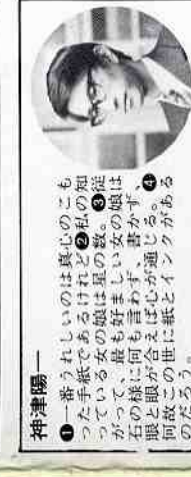 神津陽一
❶一番うれしいのは真心のこも
った手紙であるけれど❷私の知
っている女の娘は星の数。❸従
がって、最も好ましい女の娘は
石の様に何も言わず、書かず、
眼と眼が合えば心が通じる。❹
何故この世に紙とインクがある
のだろう。